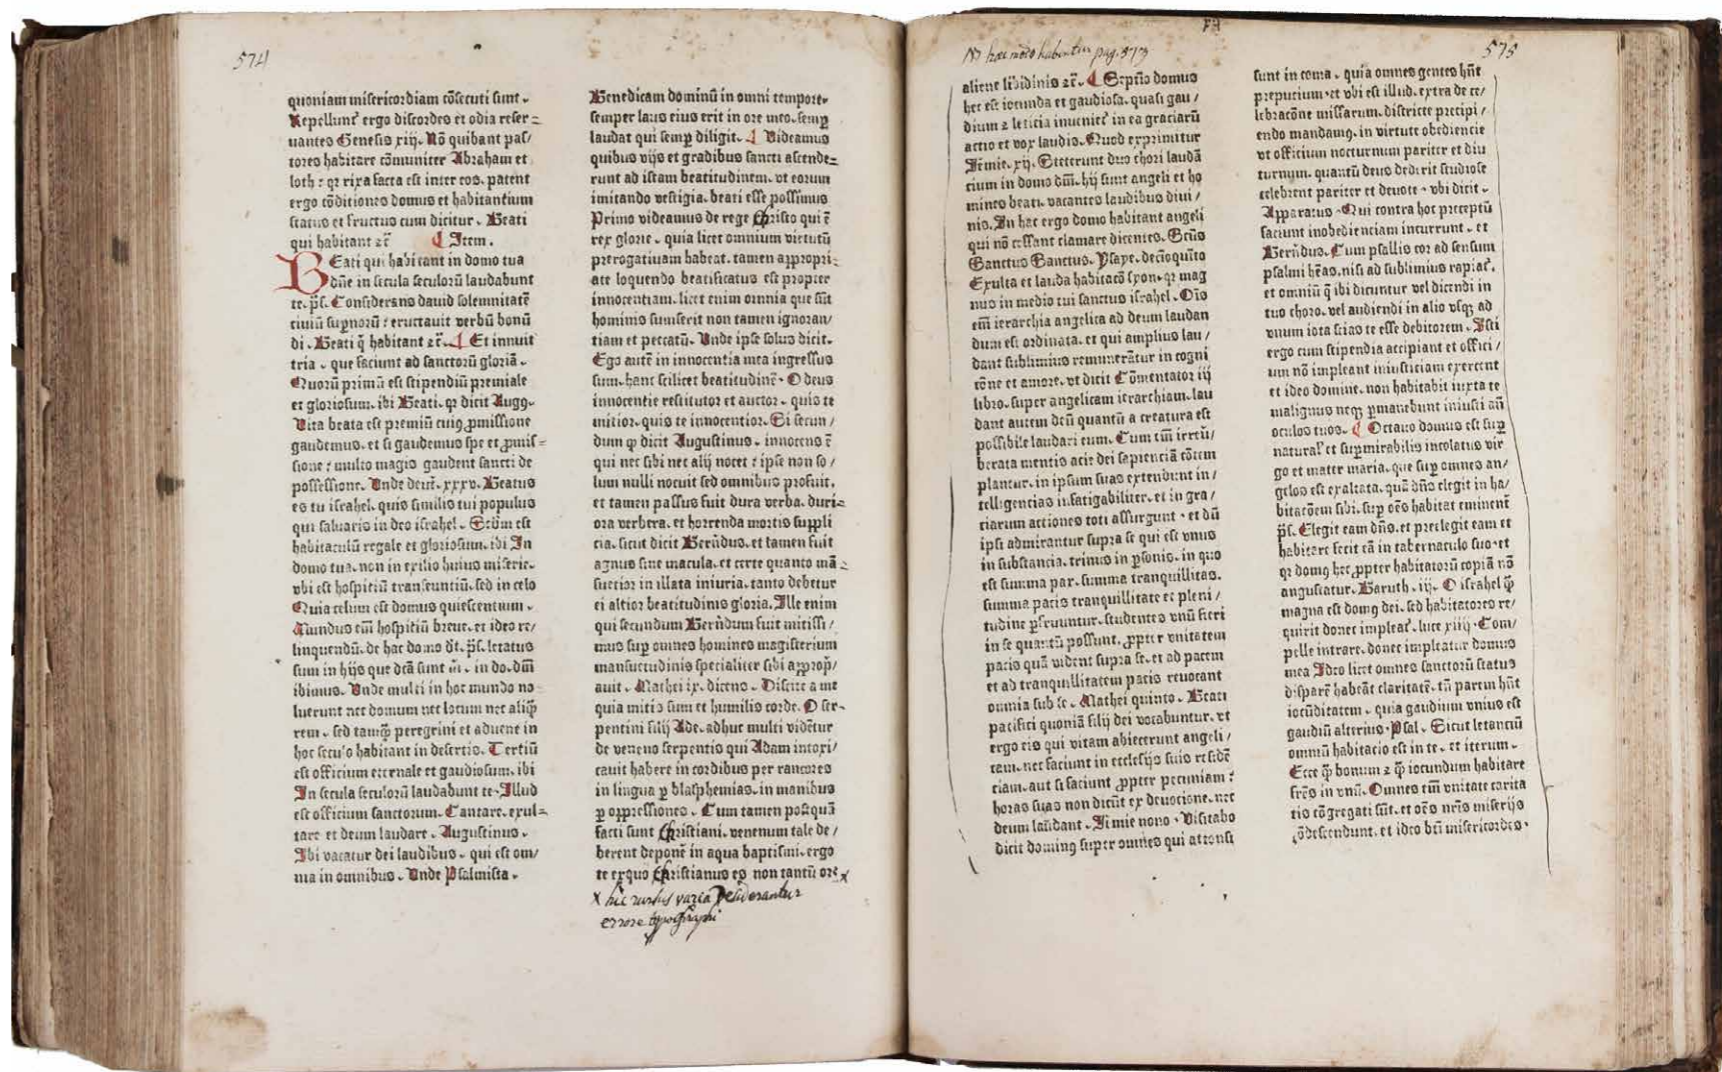 574
quoniam misericordiam cōsecuti sunt.
Repellunt͛ ergo discordes et odia reser=
uantes Genesis xiij. Nō quibant pas/
tores habitare cōmuniter Abraham et
loth : qr rixa facta est inter eos. patent
ergo cōditiones domus et habitantium
status et fructus cum dicitur. Beati
qui habitant ꝛc̄ ¶ Item.
BEati qui habitant in domo tua
dn̄e in secula seculorū laudabunt
te. p̄s. Considerans dauid solemnitatē
ciuiū suꝑnorū : eructauit verbū bonū
di. Beati q̄ habitant ꝛc̄. ¶ Et innuit
tria. que faciunt ad sanctorū gloriā.
Quorū primū est stipendiū premiale
et gloriosum. ibi Beati. qr dicit Augꝰ.
Vita beata est premiū cuiꝰ ꝓmissione
gaudemus. et si gaudemus spe et ꝓmis=
sione : multo magis gaudent sancti de
possessione. Unde deut̄. xxxv. Beatus
es tu israhel. quis similis tui populus
qui saluaris in deo israhel. Scd̄m est
habitaculū regale et gloriosum. ibi In
domo tua. non in exilio huius miserie.
vbi est hospitiū transeuntiū. sed in celo
Quia celum est domus quiescentium.
Mundus em̄ hospitiū breue. et ideo re/
linquendū. de hac domo dt̄. p̄s. letatus
sum in hijs que dcā sunt m̄. in do. dn̄i
ibimus. Unde multi in hoc mundo no
luerunt nec domum nec locum nec aliqꝫ
rem. sed tamqꝫ peregrini et aduene in
hoc seculo habitant in desertis. Tertiū
est officium eternale et gaudiosum. ibi
In secula seculorū laudabunt te. Illud
est officium sanctorum. Cantare. exul=
tare et deum laudare. Augustinus.
Ibi vacatur dei laudibus. qui est om/
nia in omnibus. Unde Psalmista.
Benedicam dominū in omni tempore.
semper laus eius erit in ore meo. semꝑ
laudat qui semꝑ diligit. ¶ Uideamus
quibus vijs et gradibus sancti ascende=
runt ad istam beatitudinem. vt eorum
imitando vestigia. beati esse possimus
Primo videamus de rege Christo qui ē
rex glorie. quia licet omnium virtutū
prerogatiuam habeat. tamen appropri=
ate loquendo beatificatus est propter
innocentiam. licet enim omnia que sūt
hominis sumserit non tamen ignoran/
tiam et peccatū. Unde ipse solus dicit.
Ego autē in innocentia mea ingressus
sum. hanc scilicet beatitudinē. O deus
innocentie restitutor et auctor. quis te
mitior. quis te innocentior. Si secun/
dum qꝫ dicit Augustinus. innocens ē
qui nec sibi nec alij nocet : ipse non so/
lum nulli nocuit sed omnibus profuit.
et tamen passus fuit dura verba. duri=
ora verbera. et horrenda mortis suppli
cia. sicut dicit Bern̄dus. et tamen fuit
agnus sine macula. et certe quanto mā=
suetior in illata iniuria. tanto debetur
ei altior beatitudinis gloria. Ille enim
qui secundum Bern̄dum fuit mitissi/
mus suꝑ omnes homines magisterium
mansuetudinis specialiter sibi appropͥ/
auit. Mathei ix. dicens. Discite a me
quia mitis sum et humilis corde. O ser-
pentini filij Ade. adhuc multi videt̄ur
de veneno serpentis qui Adam intoxi/
cauit habere in cordibus per rancores
in lingua ꝑ blasphemias. in manibus
ꝑ oppressiones. Cum tamen postquā
facti sunt Christiani. venenum tale de/
berent deponē in aqua baptismi. ergo
te exquo Christianus es non tantū ore x
x hic rursus varia desiderantur
errore typographi
NB haec modo habentur pag. 573
575
aliene libidinis ꝛc̄. ¶ Septīo domus
hec est iocunda et gaudiosa. quasi gau/
dium ꝛ leticia inueniet͛ in ea graciarū
actio et vox laudis. Quod exprimitur
Jr̄mie. xij. Steterunt duo chori laudā
cium in domo dn̄i. hij sunt angeli et ho
mines beati. vacantes laudibus diui/
nis. In hac ergo domo habitant angeli
qui nō cessant clamare dicentes. Sct̄us
Sanctus Sanctus. Ysaye. decīoquīto
Exulta et lauda habitacō syon. qr mag
nus in medio tui sanctus israhel. Oīs
em̄ ierarchia angelica ad deum laudan
dum est ordinata. et qui amplius lau/
dant sublimius remunerātur in cogni
cōne et amore. vt dicit Cōmentator iij
libro. super angelicam ierarchiam. lau
dant autem deū quantū a creatura est
possibile laudari eum. Cum em̄ irreu̅/
berata mentis acie dei sapienciā cōtem
plantur. in ipsum suas extendunt in/
telligencias infatigabiliter. et in gra/
ciarum actiones toti assurgunt. et dū
ipsi admirantur supra se qui est vnus
in substancia. trinus in ꝑsonis. in quo
est summa pax. summa tranquillitas.
summa pacis tranquillitate et pleni/
tudine ꝑfruuntur. studentes vnū fieri
in se quantū possunt. ꝓpter vnitatem
pacis quā vident supra se. et ad pacem
et ad tranquillitatem pacis reuocant
omnia sub se. Mathei quinto. Beati
pacifici quoniā filij dei vocabuntur. vt
ergo eis qui vitam abiecerunt angeli/
cam. nec faciunt in ecclesijs suis residē
ciam. aut si faciunt ꝓpter pecuniam :
horas suas non dicūt ex deuotione. nec
deum laudant. Jr̄mie nono. Uisitabo
dicit dominꝰ super omnes qui attonsi
sunt in coma. quia omnes gentes hn̄t
prepucium. et vbi est illud. extra de ce/
lebracōne missarum. districte precipi/
endo mandamꝰ. in virtute obediencie
vt officium nocturnum pariter et diu
turnum. quantū deus dederit studiose
celebrent pariter et deuote. vbi dicit.
Apparatus. Qui contra hoc preceptū
faciunt inobedienciam incurrunt. et
Bern̄dus. Cum psallis cor ad sensum
psalmi hēas. nisi ad sublimius rapiat͛.
et omniū q̄ ibi dicuntur vel dicendi in
tuo choro. vel audiendi in alio vsqꝫ ad
vnum iota scias te esse debitorem. Isti
ergo cum stipendia accipiant et offici/
um nō impleant iniusticiam exercent
et ideo domine. non habitabit iuxta te
malignus neqꝫ ꝑmanebunt iniusti an̄
oculos tuos. ¶ Octauo domus est suꝑ
natural͛ et suꝑmirabilis incolatus vir
go et mater maria. que suꝑ omnes an/
gelos est exaltata. quā dn̄s elegit in ha/
bitacōem sibi. suꝑ oēs habitat eminent͛
p̄s. Elegit eam dn̄s. et preelegit eam et
habitare fecit eā in tabernaculo suo. et
qr domꝰ hec ꝓpter habitatorū copiā nō
angustatur. Baruth. iij. O israhel qꝫ
magna est domꝰ dei. sed habitatores re/
quirit donec impleat͛. luce xiiij. Com/
pelle intrare. donec impleatur domus
mea Ideo licet omnes sanctorū status
disparē habeāt claritatē. tn̄ parem hn̄t
iocūditatem. quia gaudium vnius est
gaudiū alterius. Psal. Sicut letanciū
omniū habitacio est in te. et iterum.
Ecce qꝫ bonum ꝛ qꝫ iocundum habitare
fr̄es in vnū. Omnes em̄ vnitate carita
tis cōgregati sūt. et oēs nr̄is miserijs
cōdescendunt. et ideo bn̄ misericordes.